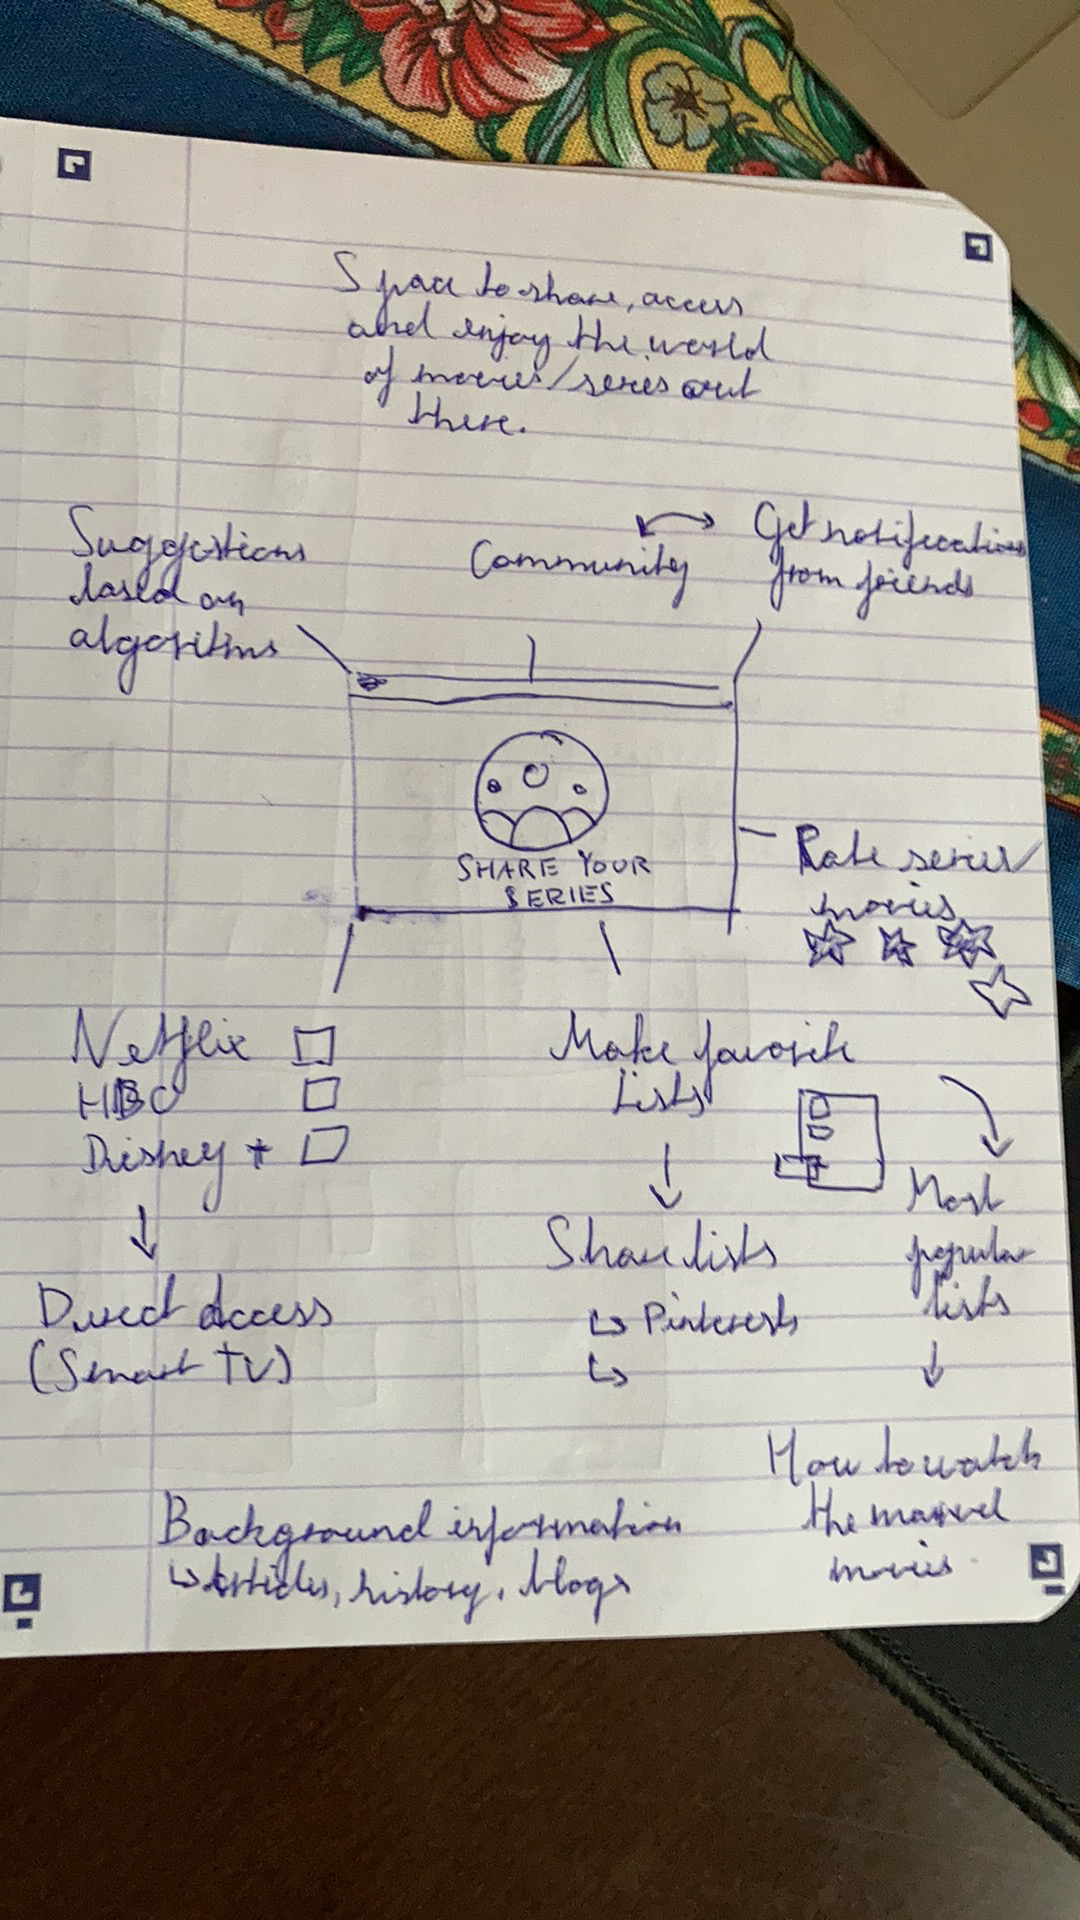 Space to share, access
and enjoy the world
of movies/series out
there.
Suggestions
based on
algoritms
Community
Get notifications
from friends
SHARE YOUR
SERIES
Rate series/
movies
Netflix
HBO
Disney +
Direct access
(Smart TV)
Make favorite
lists
Share lists
Pinterests
Most
popular
lists
How to watch
the marvel
movies
Background information
Articles, history, blogs